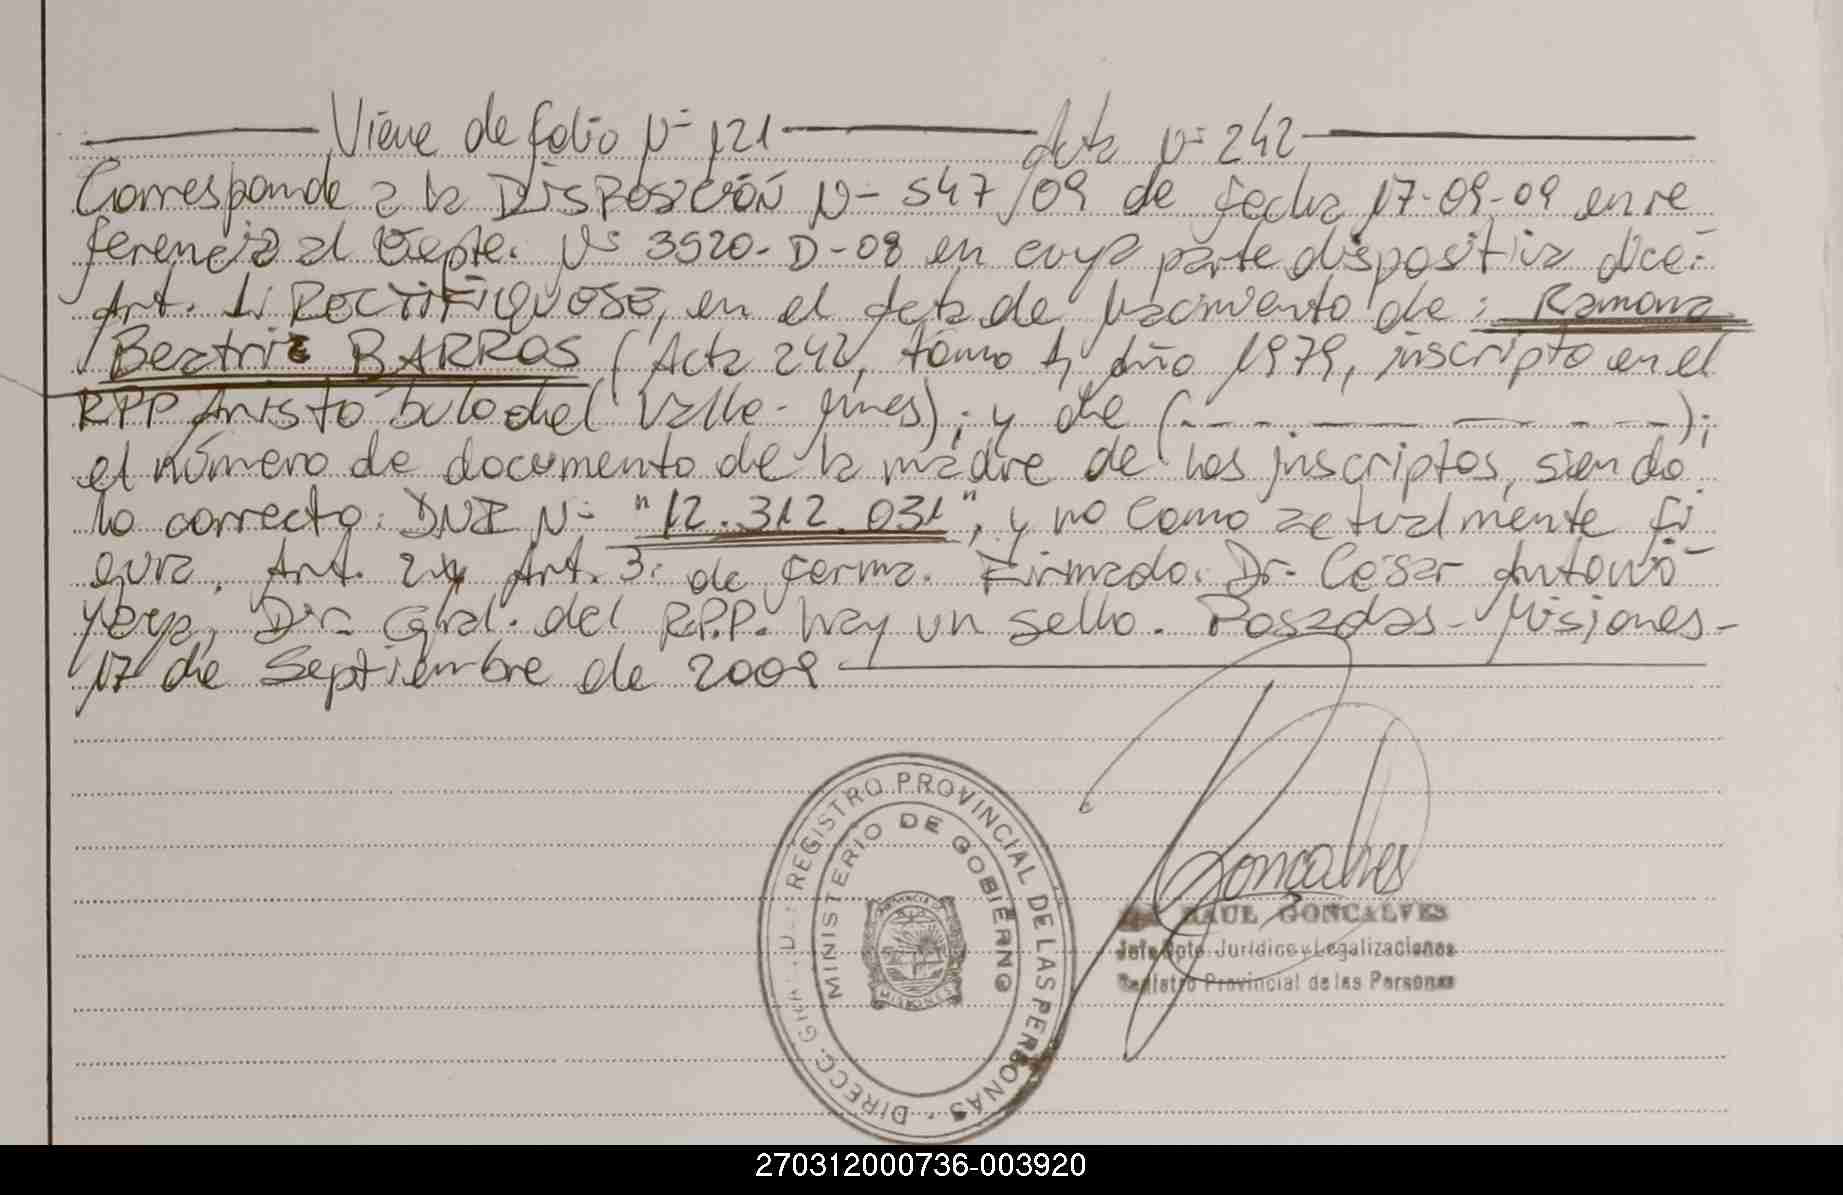 Viene de folio Nº 121 Acta Nº 242
Corresponde a la DISPOSICIÓN Nº 547/09 de fecha 17-09-09 en re
ferencia al Expte. Nº 3520-D-08 en cuya parte dispositiva dice:
Art. 1: RECTIFIQUESE, en el Acta de Nacimiento de: Ramona
Beatriz BARROS (Acta 242, tomo 1, Año 1979, inscripto en el
RPP Aristobulo del Valle - Mnes); y de (- - - - - - - -);
el número de documento de la madre de los inscriptos, siendo
lo correcto: DNI Nº "12.312.031", y no como actualmente fi
gura. Art. 2: y Art. 3: de forma. Firmado: Dr. César Antonio
Dir. Gral. del R.P.P. hay un sello. Posadas - Misiones -
17 de Septiembre de 2009
DIRECC. GRAL. DEL REGISTRO PROVINCIAL DE LAS PERSONAS
MINISTERIO DE GOBIERNO
PROVINCIA DE
MISIONES
Goncalves
RAUL GONCALVES
Jefe Dpto. Jurídico y Legalizaciones
Registro Provincial de las Personas
270312000736-003920